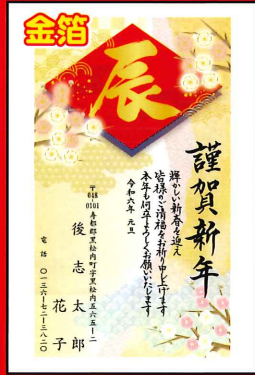 金箔
辰
謹賀新年
輝かしい新春を迎え
皆様のご清福をお祈り申し上げます
本年も何卒よろしくお願いいたします
令和六年 元旦
〒048-0101
寿都郡黒松内町字黒松内五六五ー二
後志太郎
花子
電話 〇一三六ー七二ー三八二〇